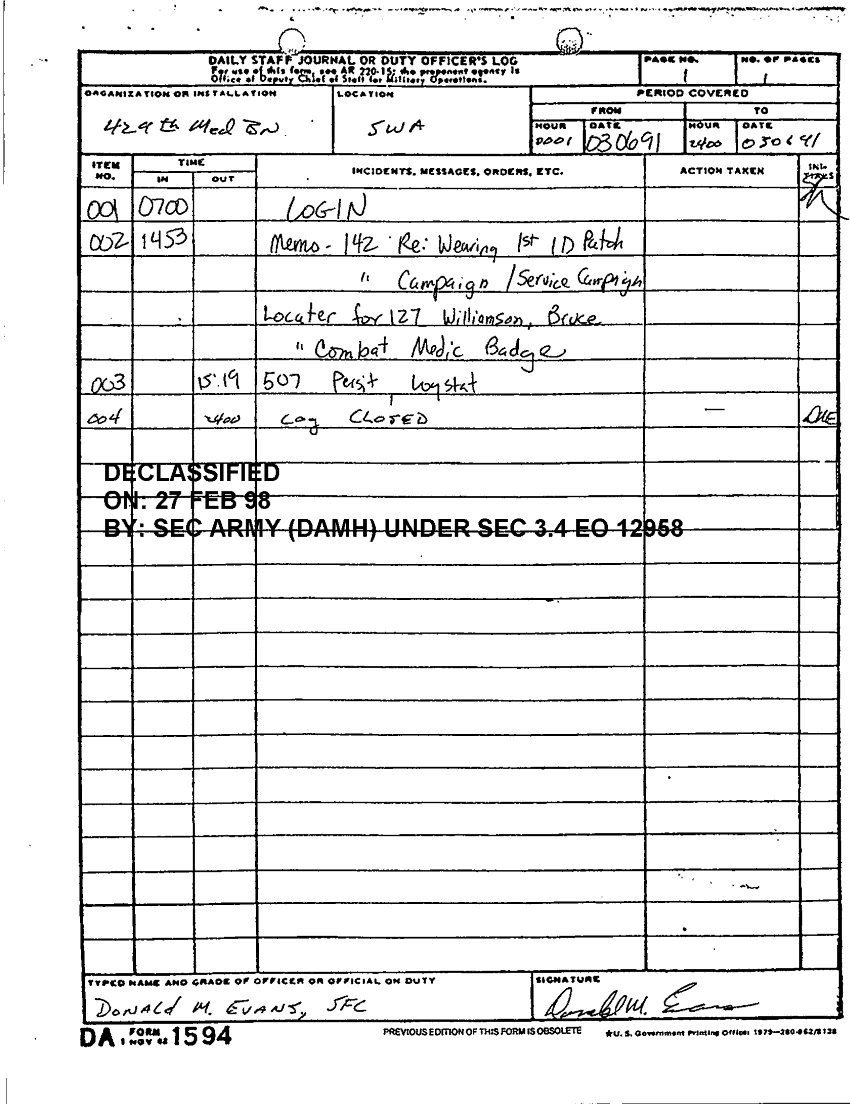 DAILY STAFF JOURNAL OR DUTY OFFICER'S LOG
For use of this form, see AR 220-15; the proponent agency is
Office of Deputy Chief of Staff for Military Operations.
PAGE NO.
1
NO. OF PAGES
1
ORGANIZATION OR INSTALLATION
429th Med BN.
LOCATION
SWA
PERIOD COVERED
FROM
TO
HOUR
0001
DATE
030691
HOUR
2400
DATE
030691
ITEM NO.
TIME
IN
OUT
INCIDENTS, MESSAGES, ORDERS, ETC.
ACTION TAKEN
INI-
TIALS
001 0700 LOGIN
002 1453 Memo - 142 Re: Wearing 1st ID Patch
" Campaign / Service Campaign
Locater for 127 Williamson, Bruce
" Combat Medic Badge
003 15:19 507 Persit / Logstat
004 2400 Log CLOSED — DME
DECLASSIFIED
ON: 27 FEB 98
BY: SEC ARMY (DAMH) UNDER SEC 3.4 EO 12958
TYPED NAME AND GRADE OF OFFICER OR OFFICIAL ON DUTY
DONALD M. EVANS, SFC
SIGNATURE
Donald M. Evans
DA FORM 1 NOV 62 1594
PREVIOUS EDITION OF THIS FORM IS OBSOLETE
★U.S. Government Printing Office: 1979—280-962/8128